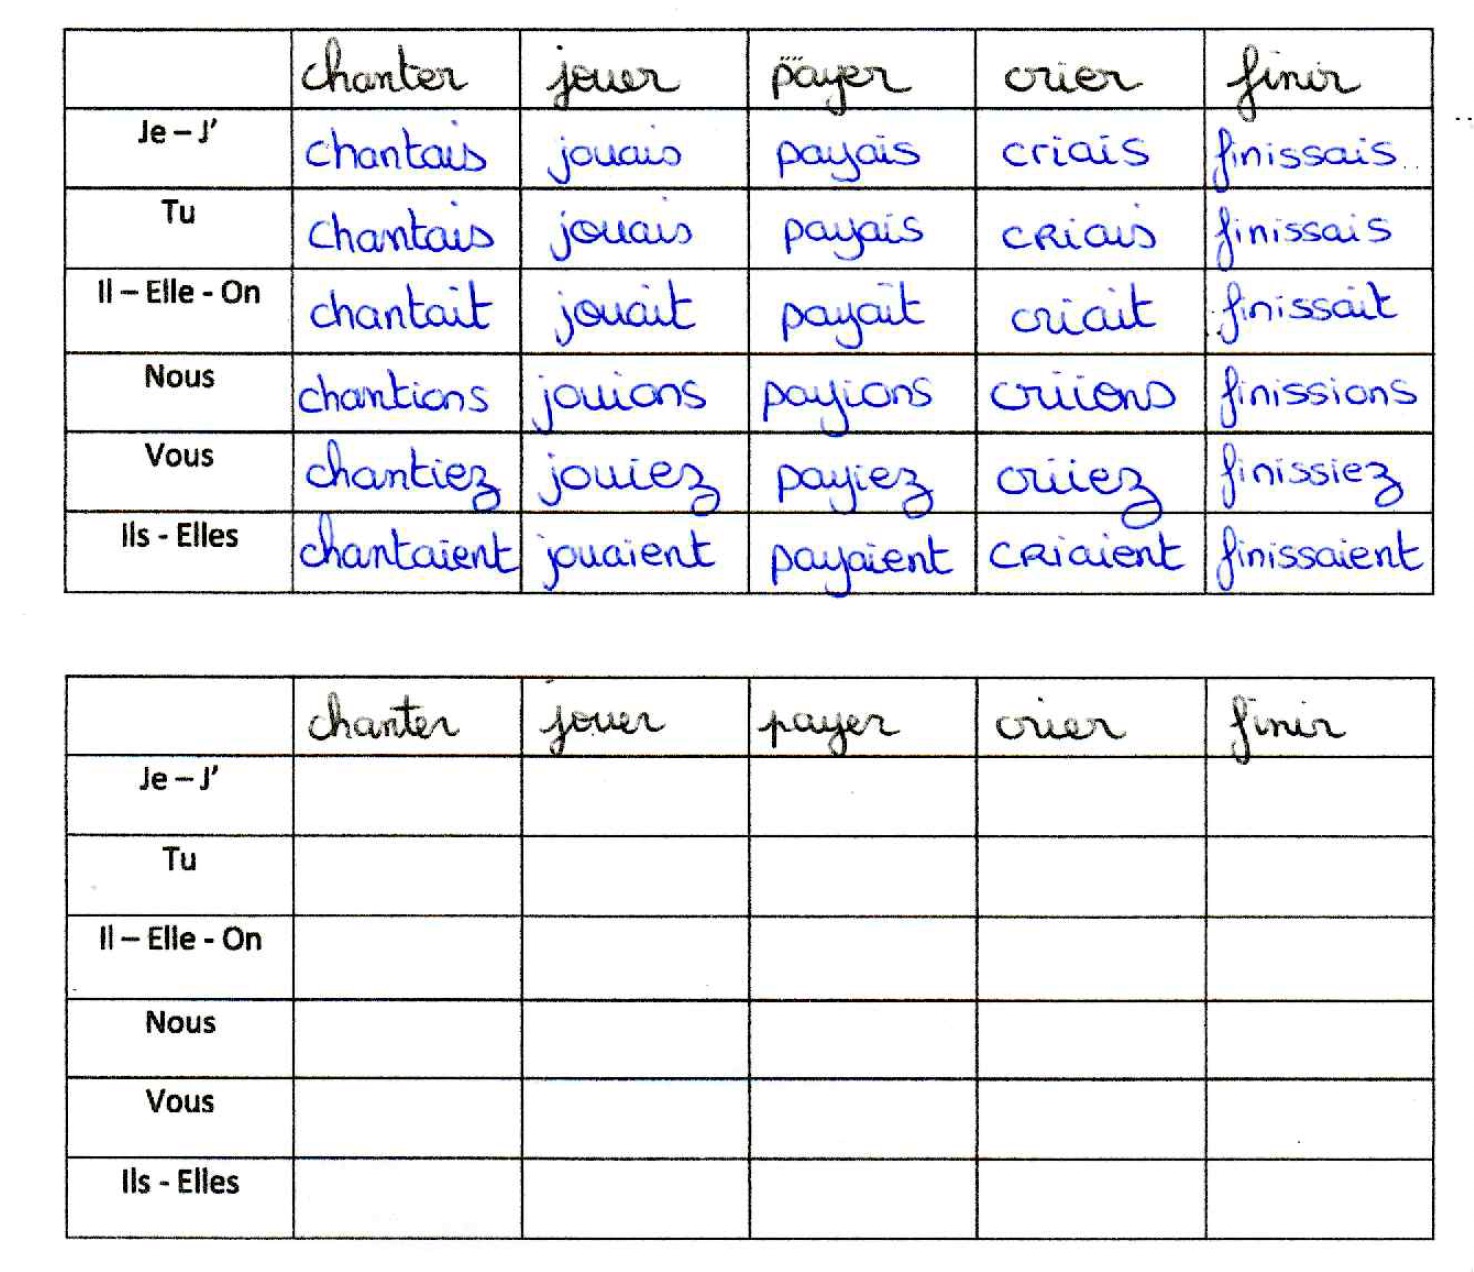 chanter jouer payer crier finir
Je – J' chantais jouais payais criais finissais
Tu chantais jouais payais criais finissais
Il – Elle - On chantait jouait payait criait finissait
Nous chantions jouions payions criions finissions
Vous chantiez jouiez payiez criiez finissiez
Ils - Elles chantaient jouaient payaient criaient finissaient
chanter jouer payer crier finir
Je – J'
Tu
Il – Elle - On
Nous
Vous
Ils - Elles